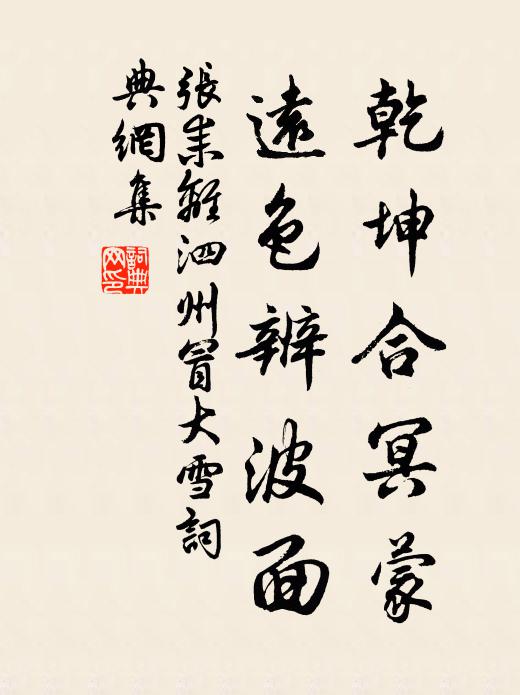 乾坤合冥蒙
遠色辨波面
張耒離泗州冒大雪詞
典網集
詞典
网印